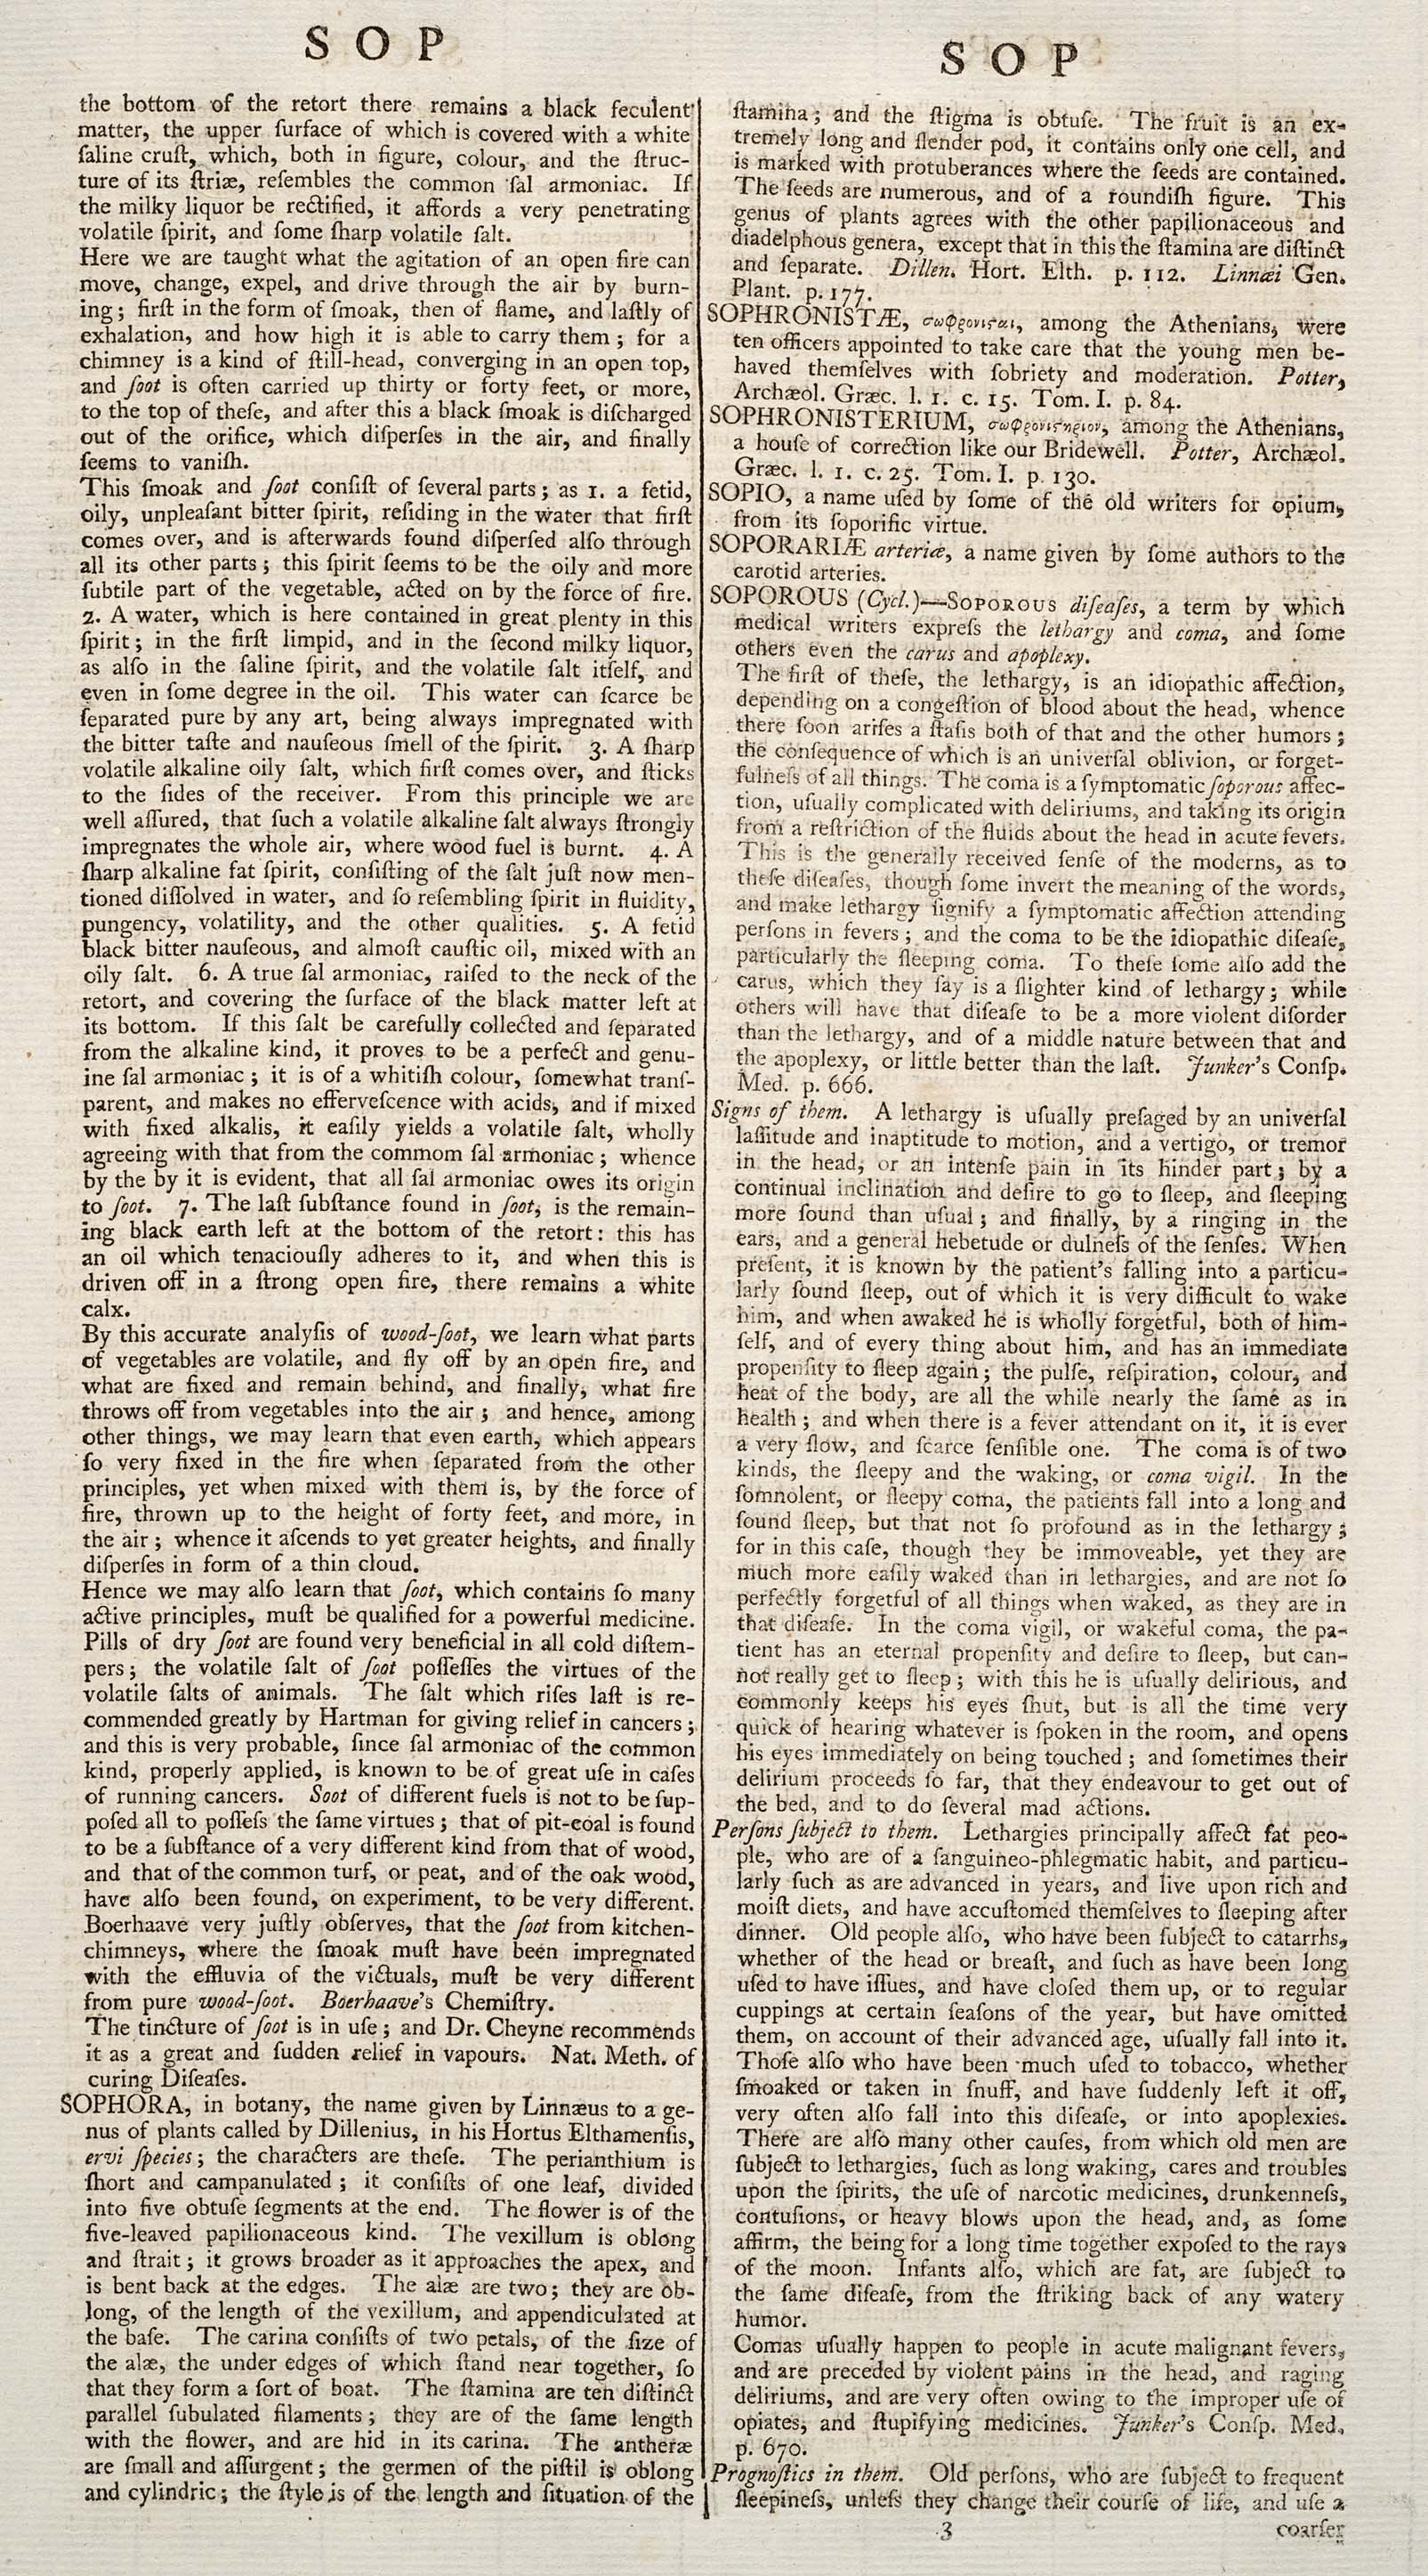 S O P
the bottom of the retort there remains a black feculent
matter, the upper ſurface of which is covered with a white
ſaline cruſt, which, both in figure, colour, and the ſtruc-
ture of its ſtriæ, reſembles the common ſal armoniac. If
the milky liquor be rectified, it affords a very penetrating
volatile ſpirit, and ſome ſharp volatile ſalt.
Here we are taught what the agitation of an open fire can
move, change, expel, and drive through the air by burn-
ing; firſt in the form of ſmoak, then of flame, and laſtly of
exhalation, and how high it is able to carry them; for a
chimney is a kind of ſtill-head, converging in an open top,
and ſoot is often carried up thirty or forty feet, or more,
to the top of theſe, and after this a black ſmoak is diſcharged
out of the orifice, which diſperſes in the air, and finally
ſeems to vaniſh.
This ſmoak and ſoot conſiſt of ſeveral parts; as 1. a fetid,
oily, unpleaſant bitter ſpirit, reſiding in the water that firſt
comes over, and is afterwards found diſperſed alſo through
all its other parts; this ſpirit ſeems to be the oily and more
ſubtile part of the vegetable, acted on by the force of fire.
2. A water, which is here contained in great plenty in this
ſpirit; in the firſt limpid, and in the ſecond milky liquor,
as alſo in the ſaline ſpirit, and the volatile ſalt itſelf, and
even in ſome degree in the oil. This water can ſcarce be
ſeparated pure by any art, being always impregnated with
the bitter taſte and nauſeous ſmell of the ſpirit. 3. A ſharp
volatile alkaline oily ſalt, which firſt comes over, and ſticks
to the ſides of the receiver. From this principle we are
well aſſured, that ſuch a volatile alkaline ſalt always ſtrongly
impregnates the whole air, where wood fuel is burnt. 4. A
ſharp alkaline fat ſpirit, conſiſting of the ſalt juſt now men-
tioned diſſolved in water, and ſo reſembling ſpirit in fluidity,
pungency, volatility, and the other qualities. 5. A fetid
black bitter nauſeous, and almoſt cauſtic oil, mixed with an
oily ſalt. 6. A true ſal armoniac, raiſed to the neck of the
retort, and covering the ſurface of the black matter left at
its bottom. If this ſalt be carefully collected and ſeparated
from the alkaline kind, it proves to be a perfect and genu-
ine ſal armoniac; it is of a whitiſh colour, ſomewhat tranſ-
parent, and makes no efferveſcence with acids, and if mixed
with fixed alkalis, it eaſily yields a volatile ſalt, wholly
agreeing with that from the commom ſal armoniac; whence
by the by it is evident, that all ſal armoniac owes its origin
to ſoot. 7. The laſt ſubſtance found in ſoot, is the remain-
ing black earth left at the bottom of the retort: this has
an oil which tenaciouſly adheres to it, and when this is
driven off in a ſtrong open fire, there remains a white
calx.
By this accurate analyſis of wood-ſoot, we learn what parts
of vegetables are volatile, and fly off by an open fire, and
what are fixed and remain behind, and finally, what fire
throws off from vegetables into the air; and hence, among
other things, we may learn that even earth, which appears
ſo very fixed in the fire when ſeparated from the other
principles, yet when mixed with them is, by the force of
fire, thrown up to the height of forty feet, and more, in
the air; whence it aſcends to yet greater heights, and finally
diſperſes in form of a thin cloud.
Hence we may alſo learn that ſoot, which contains ſo many
active principles, muſt be qualified for a powerful medicine.
Pills of dry ſoot are found very beneficial in all cold diſtem-
pers; the volatile ſalt of ſoot poſſeſſes the virtues of the
volatile ſalts of animals. The ſalt which riſes laſt is re-
commended greatly by Hartman for giving relief in cancers;
and this is very probable, ſince ſal armoniac of the common
kind, properly applied, is known to be of great uſe in caſes
of running cancers. Soot of different fuels is not to be ſup-
poſed all to poſſeſs the ſame virtues; that of pit-coal is found
to be a ſubſtance of a very different kind from that of wood,
and that of the common turf, or peat, and of the oak wood,
have alſo been found, on experiment, to be very different.
Boerhaave very juſtly obſerves, that the ſoot from kitchen-
chimneys, where the ſmoak muſt have been impregnated
with the effluvia of the victuals, muſt be very different
from pure wood-ſoot. Boerhaave's Chemiſtry.
The tincture of ſoot is in uſe; and Dr. Cheyne recommends
it as a great and ſudden relief in vapours. Nat. Meth. of
curing Diſeaſes.
SOPHORA, in botany, the name given by Linnæus to a ge-
nus of plants called by Dillenius, in his Hortus Elthamenſis,
ervi ſpecies; the characters are theſe. The perianthium is
ſhort and campanulated; it conſiſts of one leaf, divided
into five obtuſe ſegments at the end. The flower is of the
five-leaved papilionaceous kind. The vexillum is oblong
and ſtrait; it grows broader as it approaches the apex, and
is bent back at the edges. The alæ are two; they are ob-
long, of the length of the vexillum, and appendiculated at
the baſe. The carina conſiſts of two petals, of the ſize of
the alæ, the under edges of which ſtand near together, ſo
that they form a ſort of boat. The ſtamina are ten diſtinct
parallel ſubulated filaments; they are of the ſame length
with the flower, and are hid in its carina. The antheræ
are ſmall and aſſurgent; the germen of the piſtil is oblong
and cylindric; the ſtyle is of the length and ſituation of the
S O P
ſtamina; and the ſtigma is obtuſe. The fruit is an ex-
tremely long and ſlender pod, it contains only one cell, and
is marked with protuberances where the ſeeds are contained.
The ſeeds are numerous, and of a roundiſh figure. This
genus of plants agrees with the other papilionaceous and
diadelphous genera, except that in this the ſtamina are diſtinct
and ſeparate. Dillen. Hort. Elth. p. 112. Linnæi Gen.
Plant. p. 177.
SOPHRONISTÆ, σωφρονιϛαι, among the Athenians, were
ten officers appointed to take care that the young men be-
haved themſelves with ſobriety and moderation. Potter,
Archæol. Græc. l. 1. c. 15. Tom. I. p. 84.
SOPHRONISTERIUM, σωφρονιϛηριον, among the Athenians,
a houſe of correction like our Bridewell. Potter, Archæol.
Græc. l. 1. c. 25. Tom. I. p. 130.
SOPIO, a name uſed by ſome of the old writers for opium,
from its ſoporific virtue.
SOPORARIÆ arteriæ, a name given by ſome authors to the
carotid arteries.
SOPOROUS (Cycl.)—SOPOROUS diſeaſes, a term by which
medical writers expreſs the lethargy and coma, and ſome
others even the carus and apoplexy.
The firſt of theſe, the lethargy, is an idiopathic affection,
depending on a congeſtion of blood about the head, whence
there ſoon ariſes a ſtaſis both of that and the other humors;
the conſequence of which is an univerſal oblivion, or forget-
fulneſs of all things. The coma is a ſymptomatic ſoporous affec-
tion, uſually complicated with deliriums, and taking its origin
from a reſtriction of the fluids about the head in acute fevers.
This is the generally received ſenſe of the moderns, as to
theſe diſeaſes, though ſome invert the meaning of the words,
and make lethargy ſignify a ſymptomatic affection attending
perſons in fevers; and the coma to be the idiopathic diſeaſe,
particularly the ſleeping coma. To theſe ſome alſo add the
carus, which they ſay is a ſlighter kind of lethargy; while
others will have that diſeaſe to be a more violent diſorder
than the lethargy, and of a middle nature between that and
the apoplexy, or little better than the laſt. Junker's Conſp.
Med. p. 666.
Signs of them. A lethargy is uſually preſaged by an univerſal
laſſitude and inaptitude to motion, and a vertigo, or tremor
in the head, or an intenſe pain in its hinder part; by a
continual inclination and deſire to go to ſleep, and ſleeping
more ſound than uſual; and finally, by a ringing in the
ears, and a general hebetude or dulneſs of the ſenſes. When
preſent, it is known by the patient's falling into a particu-
larly ſound ſleep, out of which it is very difficult to wake
him, and when awaked he is wholly forgetful, both of him-
ſelf, and of every thing about him, and has an immediate
propenſity to ſleep again; the pulſe, reſpiration, colour, and
heat of the body, are all the while nearly the ſame as in
health; and when there is a fever attendant on it, it is ever
a very ſlow, and ſcarce ſenſible one. The coma is of two
kinds, the ſleepy and the waking, or coma vigil. In the
ſomnolent, or ſleepy coma, the patients fall into a long and
ſound ſleep, but that not ſo profound as in the lethargy;
for in this caſe, though they be immoveable, yet they are
much more eaſily waked than in lethargies, and are not ſo
perfectly forgetful of all things when waked, as they are in
that diſeaſe. In the coma vigil, or wakeful coma, the pa-
tient has an eternal propenſity and deſire to ſleep, but can-
not really get to ſleep; with this he is uſually delirious, and
commonly keeps his eyes ſhut, but is all the time very
quick of hearing whatever is ſpoken in the room, and opens
his eyes immediately on being touched; and ſometimes their
delirium proceeds ſo far, that they endeavour to get out of
the bed, and to do ſeveral mad actions.
Perſons ſubject to them. Lethargies principally affect fat peo-
ple, who are of a ſanguineo-phlegmatic habit, and particu-
larly ſuch as are advanced in years, and live upon rich and
moiſt diets, and have accuſtomed themſelves to ſleeping after
dinner. Old people alſo, who have been ſubject to catarrhs,
whether of the head or breaſt, and ſuch as have been long
uſed to have iſſues, and have cloſed them up, or to regular
cuppings at certain ſeaſons of the year, but have omitted
them, on account of their advanced age, uſually fall into it.
Thoſe alſo who have been much uſed to tobacco, whether
ſmoaked or taken in ſnuff, and have ſuddenly left it off,
very often alſo fall into this diſeaſe, or into apoplexies.
There are alſo many other cauſes, from which old men are
ſubject to lethargies, ſuch as long waking, cares and troubles
upon the ſpirits, the uſe of narcotic medicines, drunkenneſs,
contuſions, or heavy blows upon the head, and, as ſome
affirm, the being for a long time together expoſed to the rays
of the moon. Infants alſo, which are fat, are ſubject to
the ſame diſeaſe, from the ſtriking back of any watery
humor.
Comas uſually happen to people in acute malignant fevers,
and are preceded by violent pains in the head, and raging
deliriums, and are very often owing to the improper uſe of
opiates, and ſtupifying medicines. Junker's Conſp. Med.
p. 670.
Prognoſtics in them. Old perſons, who are ſubject to frequent
ſleepineſs, unleſs they change their courſe of life, and uſe a
3 coarſer